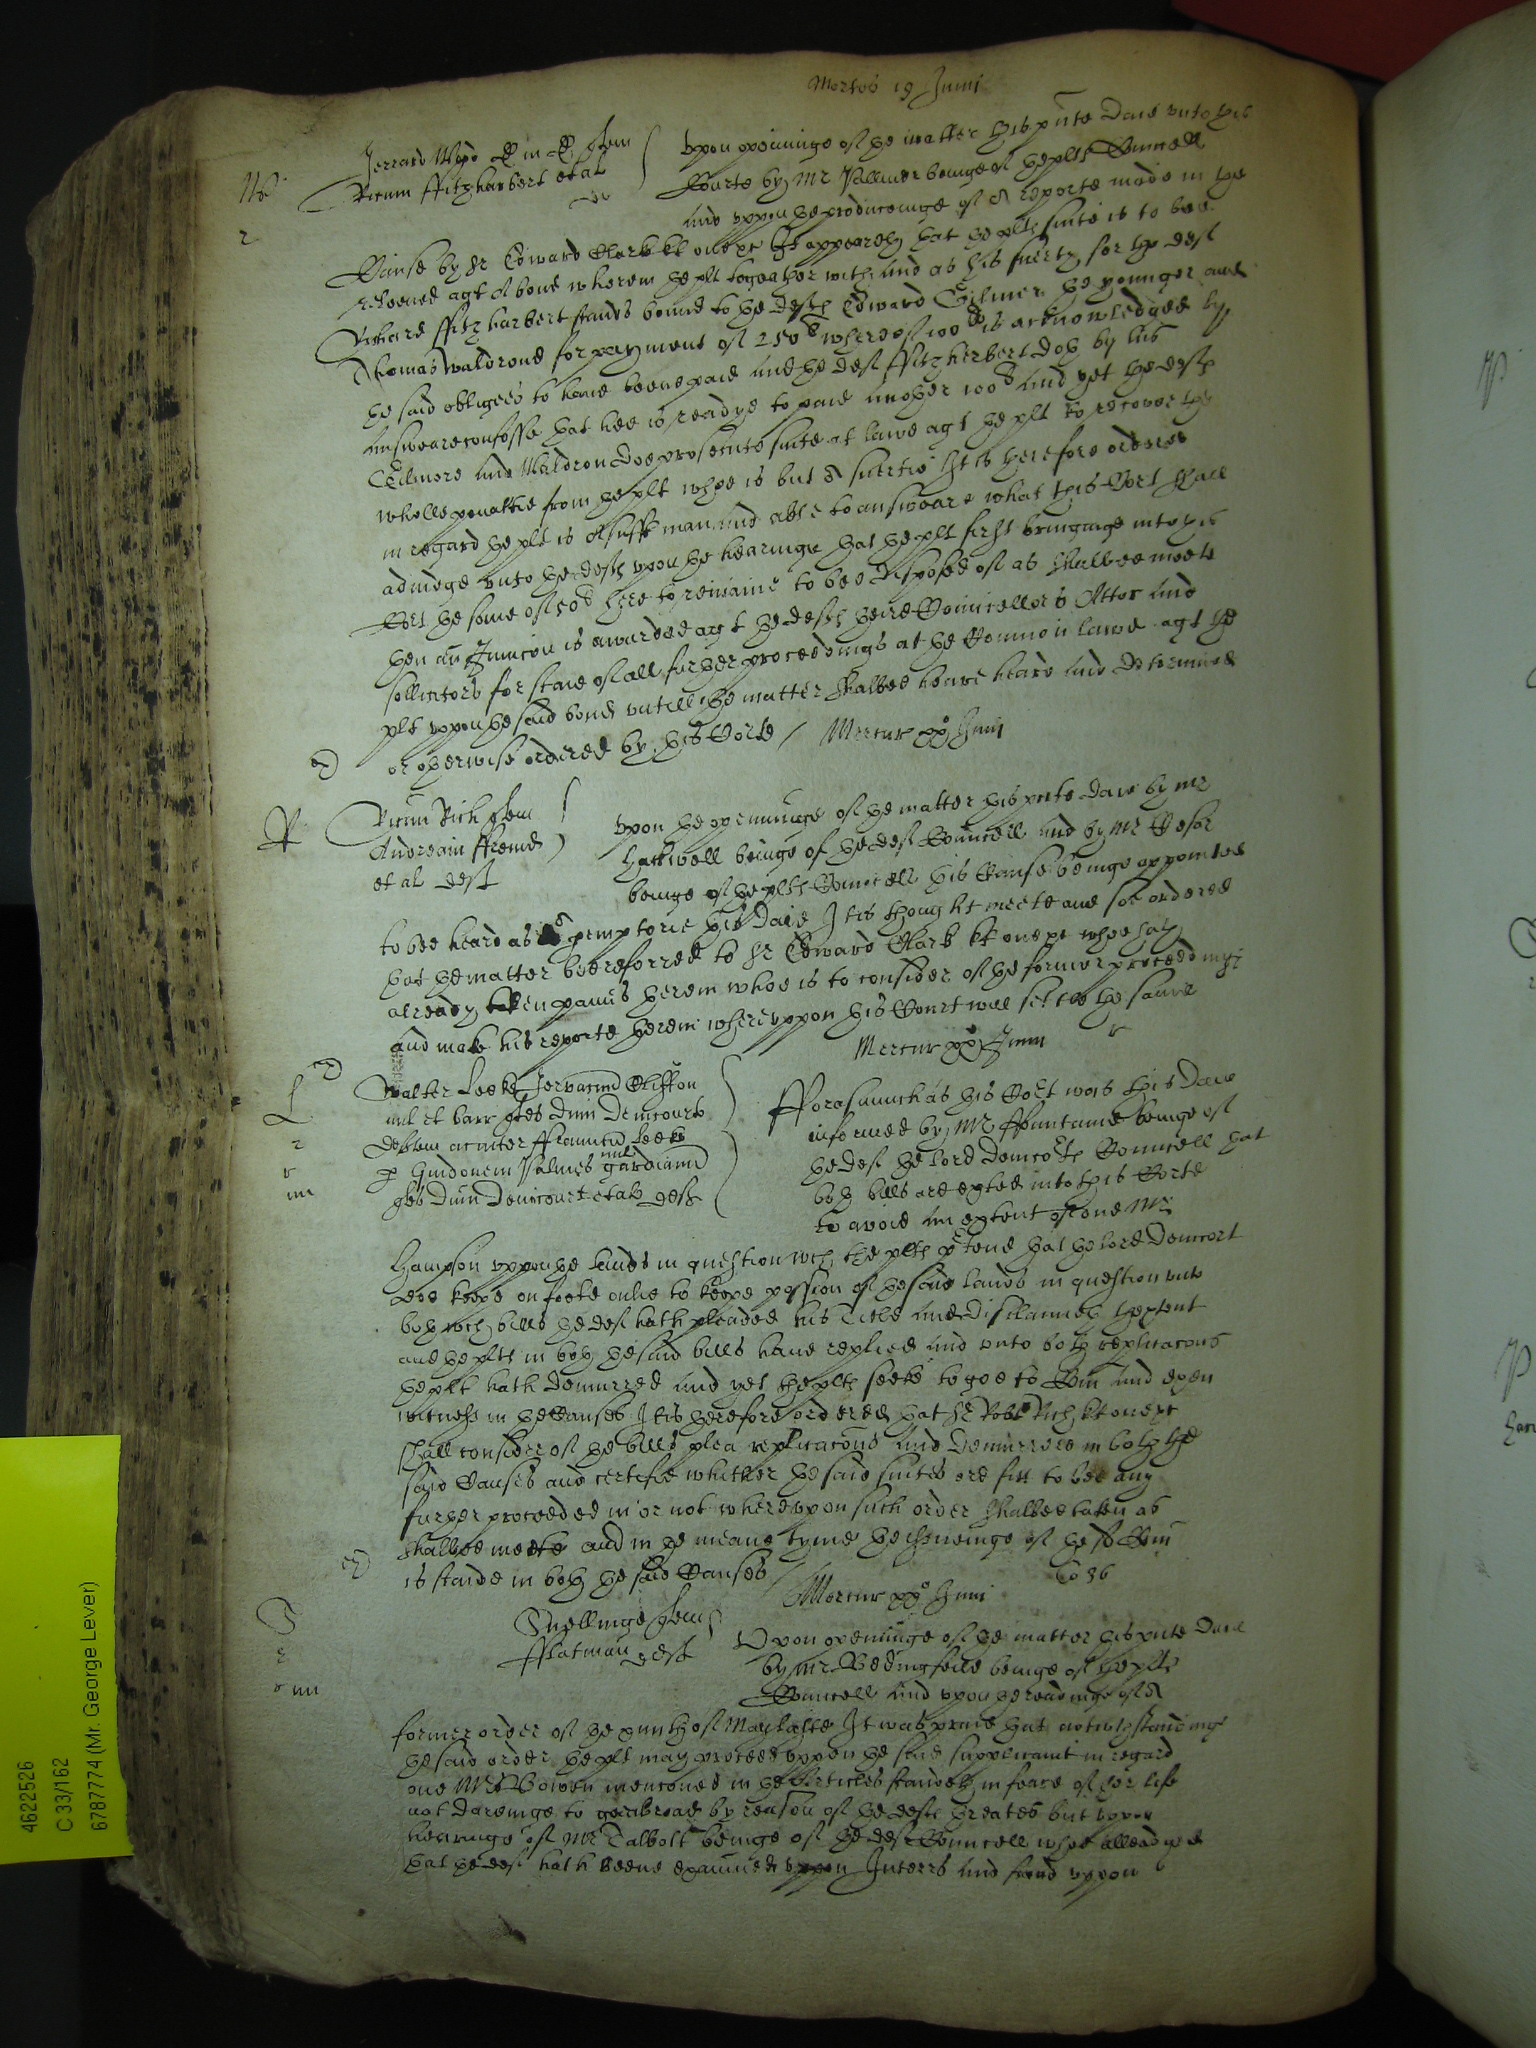 Martis 19 Junii
Jerrard Wood
Ricum ffitzharbert et al
Upon openinge of the matter this pnte daie unto this
Courte by Mr Pallmer beinge of the plts Councell
and uppon the produceinge of A reporte made in the
Cause by Sr Edward Clark kt one &c It appeareth that the plts suite is to bee
releeved agt A bond wherein the plt togeather with and as his suerty for the deft
Richard ffitzharbert stands bound to the defts Edward Gilmer the younger and
Thomas Waldrond for payment of 250li whereof 100li is acknowledged by
the said obligees to have beene paid and the deft ffitzherbert doth by his
answeare confesse that hee is readye to paie another 100li and yet the defts
Gilmore and Waldron doe prosecute suite at lawe agt the plt to recover the
whole penaltie from the plt whoe is but A suertie It is therefore ordered
in regard the plt is A suff man and able to answeare what this Cort shall
adiudge unto the defts upon the hearinge that the plt first bringinge into this
Cort the some of 50li here to remaine to bee disposed of as shalbee meete
then an Iniuncion is awarded agt the defts theire Councellors Attor and
sollicitors for staie of all further proceedings at the Common lawe agt the
plt uppon the said bond untill the matter shalbee heare heard and determined
or otherwise ordered by this Corte / Mercur xx Junii
R
Ricum Rich
Andream ffrend
et al deft
Upon the openninge of the matter this pnte daie by Mr
Hackwell beinge of the deft Councell and by Mr
beinge of the plts Councell this Cause beinge appointed
to bee heard as A pemptorie this daie It is thought meete and soe ordered
that the matter bee referred to Sr Edward Clark kt one &c whoe hath
already taken paines herein whoe is to consider of the former proceedings
and make his reporte herein whereuppon this Court will settle the same
Mercur xx Junii
L
Walter Leeke Jervasium Clifton
mil et barr dnm Deincourt
ffranciscu Leeke
p Guidonem Palmes mil gardianu
dnm Deincourt et als deft
fforasmuch as this Cort was this daie
informed by Mr ffountaine beinge of
the deft the lord Deincorts Councell that
both bills are exted into this Corte
to avoid an extent of one Mr
Hampson uppon the lands in question wch the plts ptend that the lord Deincort
doe keepe on foote onlie to keepe possion of the said lands in question unto
both wch bills the deft hath pleaded his Title and disclaimeth thextent
and the plts in both the said bills have replied and unto both replicacons
the plt hath demurred and yet the plts seeke to goe to Com and exen
witness in the causes It is therefore ordered that Sr Robt Rich kt one &c
shall consider of the bills plea replicacons and demurrers in both the
said Causes and certifie whither the said suites are fitt to bee any
further proceeded in or not whereupon such order shalbee taken as
shalbee meete and in the meane tyme the of the sd Com
is staide in both the said Causes
Mercur xx Junii
S
Snellinge
fflatman deft
Upon openinge of the matter this pnte daie
by Mr Bedingfeild beinge of the plts
Councell and upon the readinge of A
former order of the of May laste It was praied that notwithstandinge
the said order the plt may proceed uppon the said supplicavit in regard
one Mrs Bowen mencioned in the Articles standeth in feare of her life
not dareinge to goe abroad by reason of the defts threates but uppon
hearinge of Mr Talbott beinge of the deft Councell whoe alleadged
that the deft hath beene examined uppon Interrs and uppon
4622526
C 33/162
6787774 (Mr. George Lever)